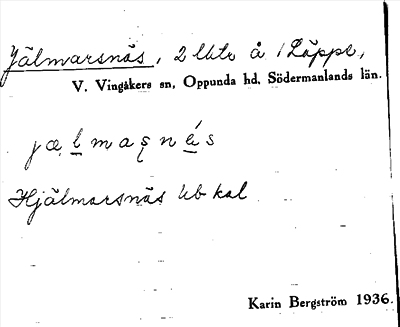 Jälmarsnäs, 2 lhtr å 1 Läppe,
V. Vingåkers sn, Oppunda hd, Södermanlands län.
jæḷmaşnés
Hjälmarsnäs hb kal
Karin Bergström 1936.